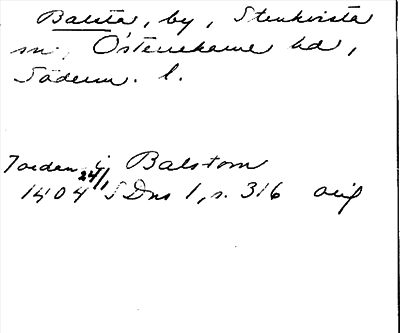 Balsta, by, Stenkvista
sn, Österrekarne hd,
Söderm. l.
Jordan i Balstom
1404 24/1 SDns 1, s. 316 orig